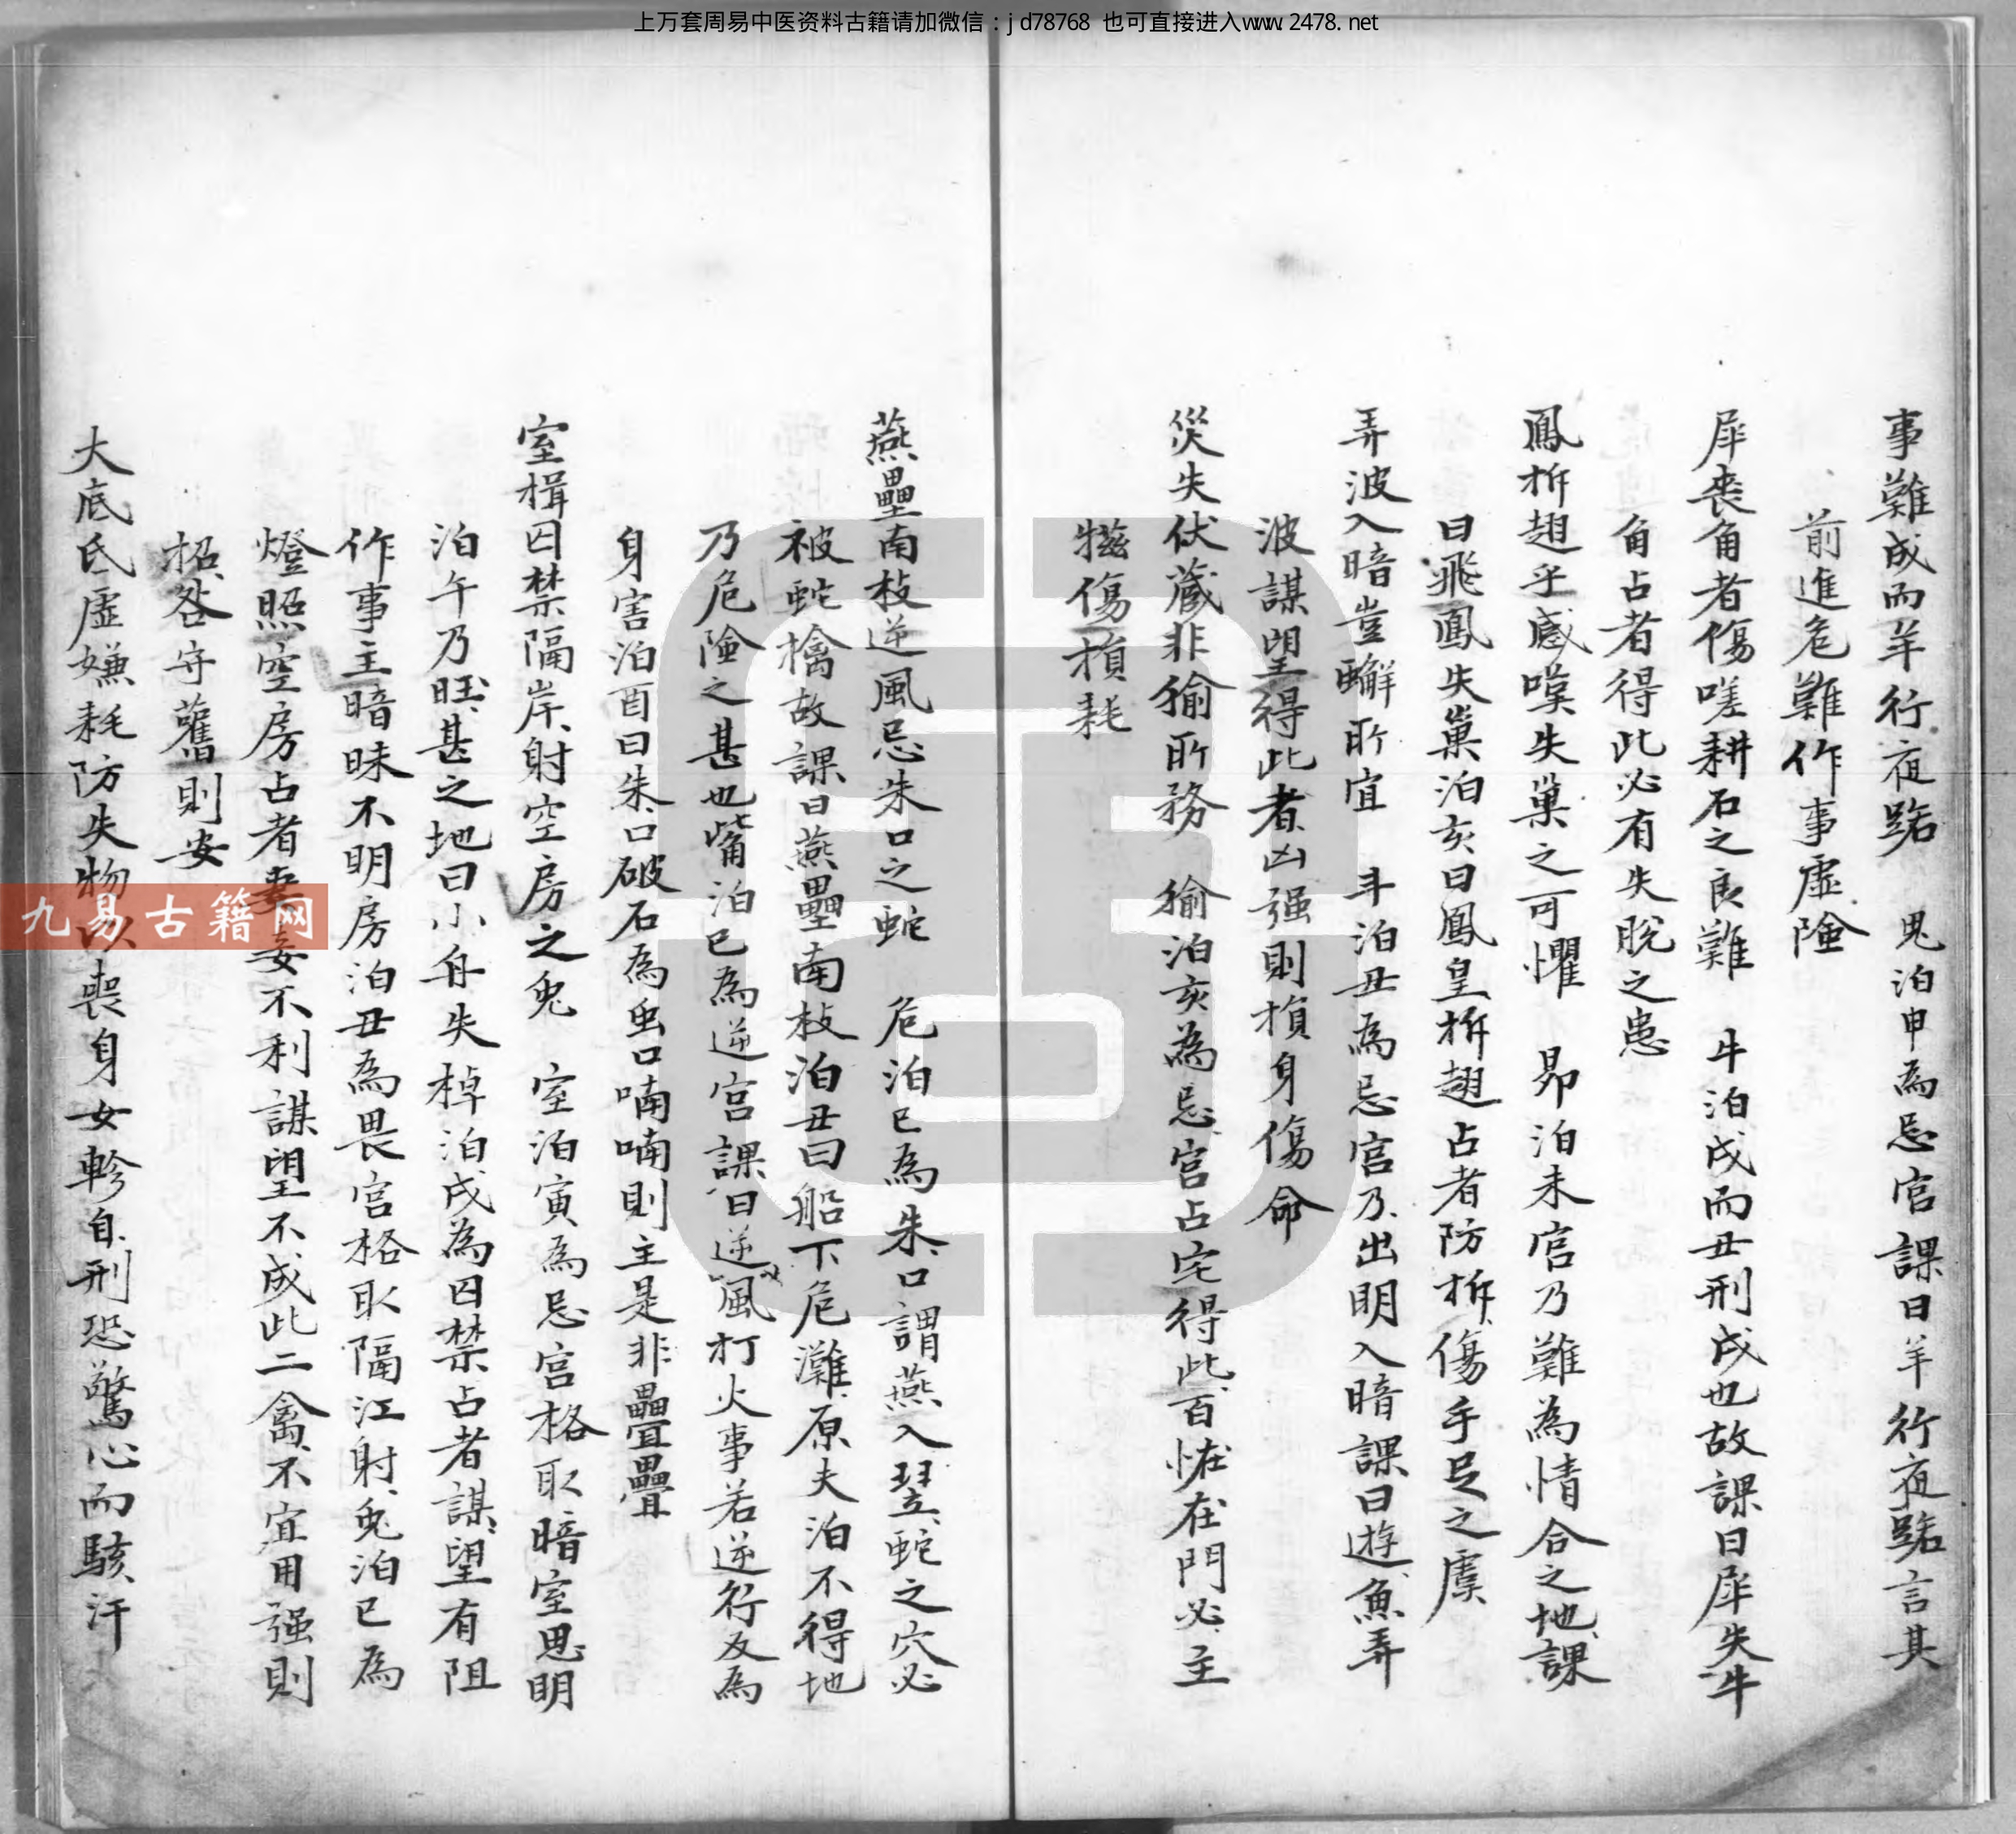 上万套周易中医资料古籍请加微信：jd78768 也可直接进入www.2478.net
事難成而羊行夜路 鬼泊申為忌官課曰羊行夜路言其
前進危難作事虛險
犀喪角者傷嗟耕石之良難 牛泊戌而丑刑戌也故課曰犀失牛
角占者得此必有失脫之患
鳳折翅乎感嘆失巢之可懼 昴泊未官乃難為情合之地課
曰飛鳳失巢泊亥曰鳳皇折翅占者防折傷手足之虞
弄波入暗豈觧所宜 斗泊丑為忌官乃出明入暗課曰遊魚弄
波謀望得此者凶强則損身傷命
災失伏藏非㺄所務 㺄泊亥為忌宮占宅得此百恠在門必主
牸傷損耗
燕壘南枝逆風忌朱口之蛇 危泊巳為朱口謂燕入蛇之穴必
被蛇擒故課曰燕壘南枝泊丑曰船下危灘原夫泊不得地
乃危險之甚也觜泊巳為逆宮課曰逆風打火事若逆行反為
身害泊酉曰朱口破石為虫口喃喃則主是非疊疊
室楫囚禁隔岸射空房之兔 室泊寅為忌宮格取暗室思明
泊午乃旺甚之地曰小舟失棹泊戌為囚禁占者謀望有阻
作事主暗昧不明房泊丑為畏宮格取隔江射兔泊巳為
燈照空房占者妻妾不利謀望不成此二禽不宜用强則
招咎守舊則安
大底氐虛嫌耗防失物以喪身女軫自刑恐驚心而駭汗
九易古籍网